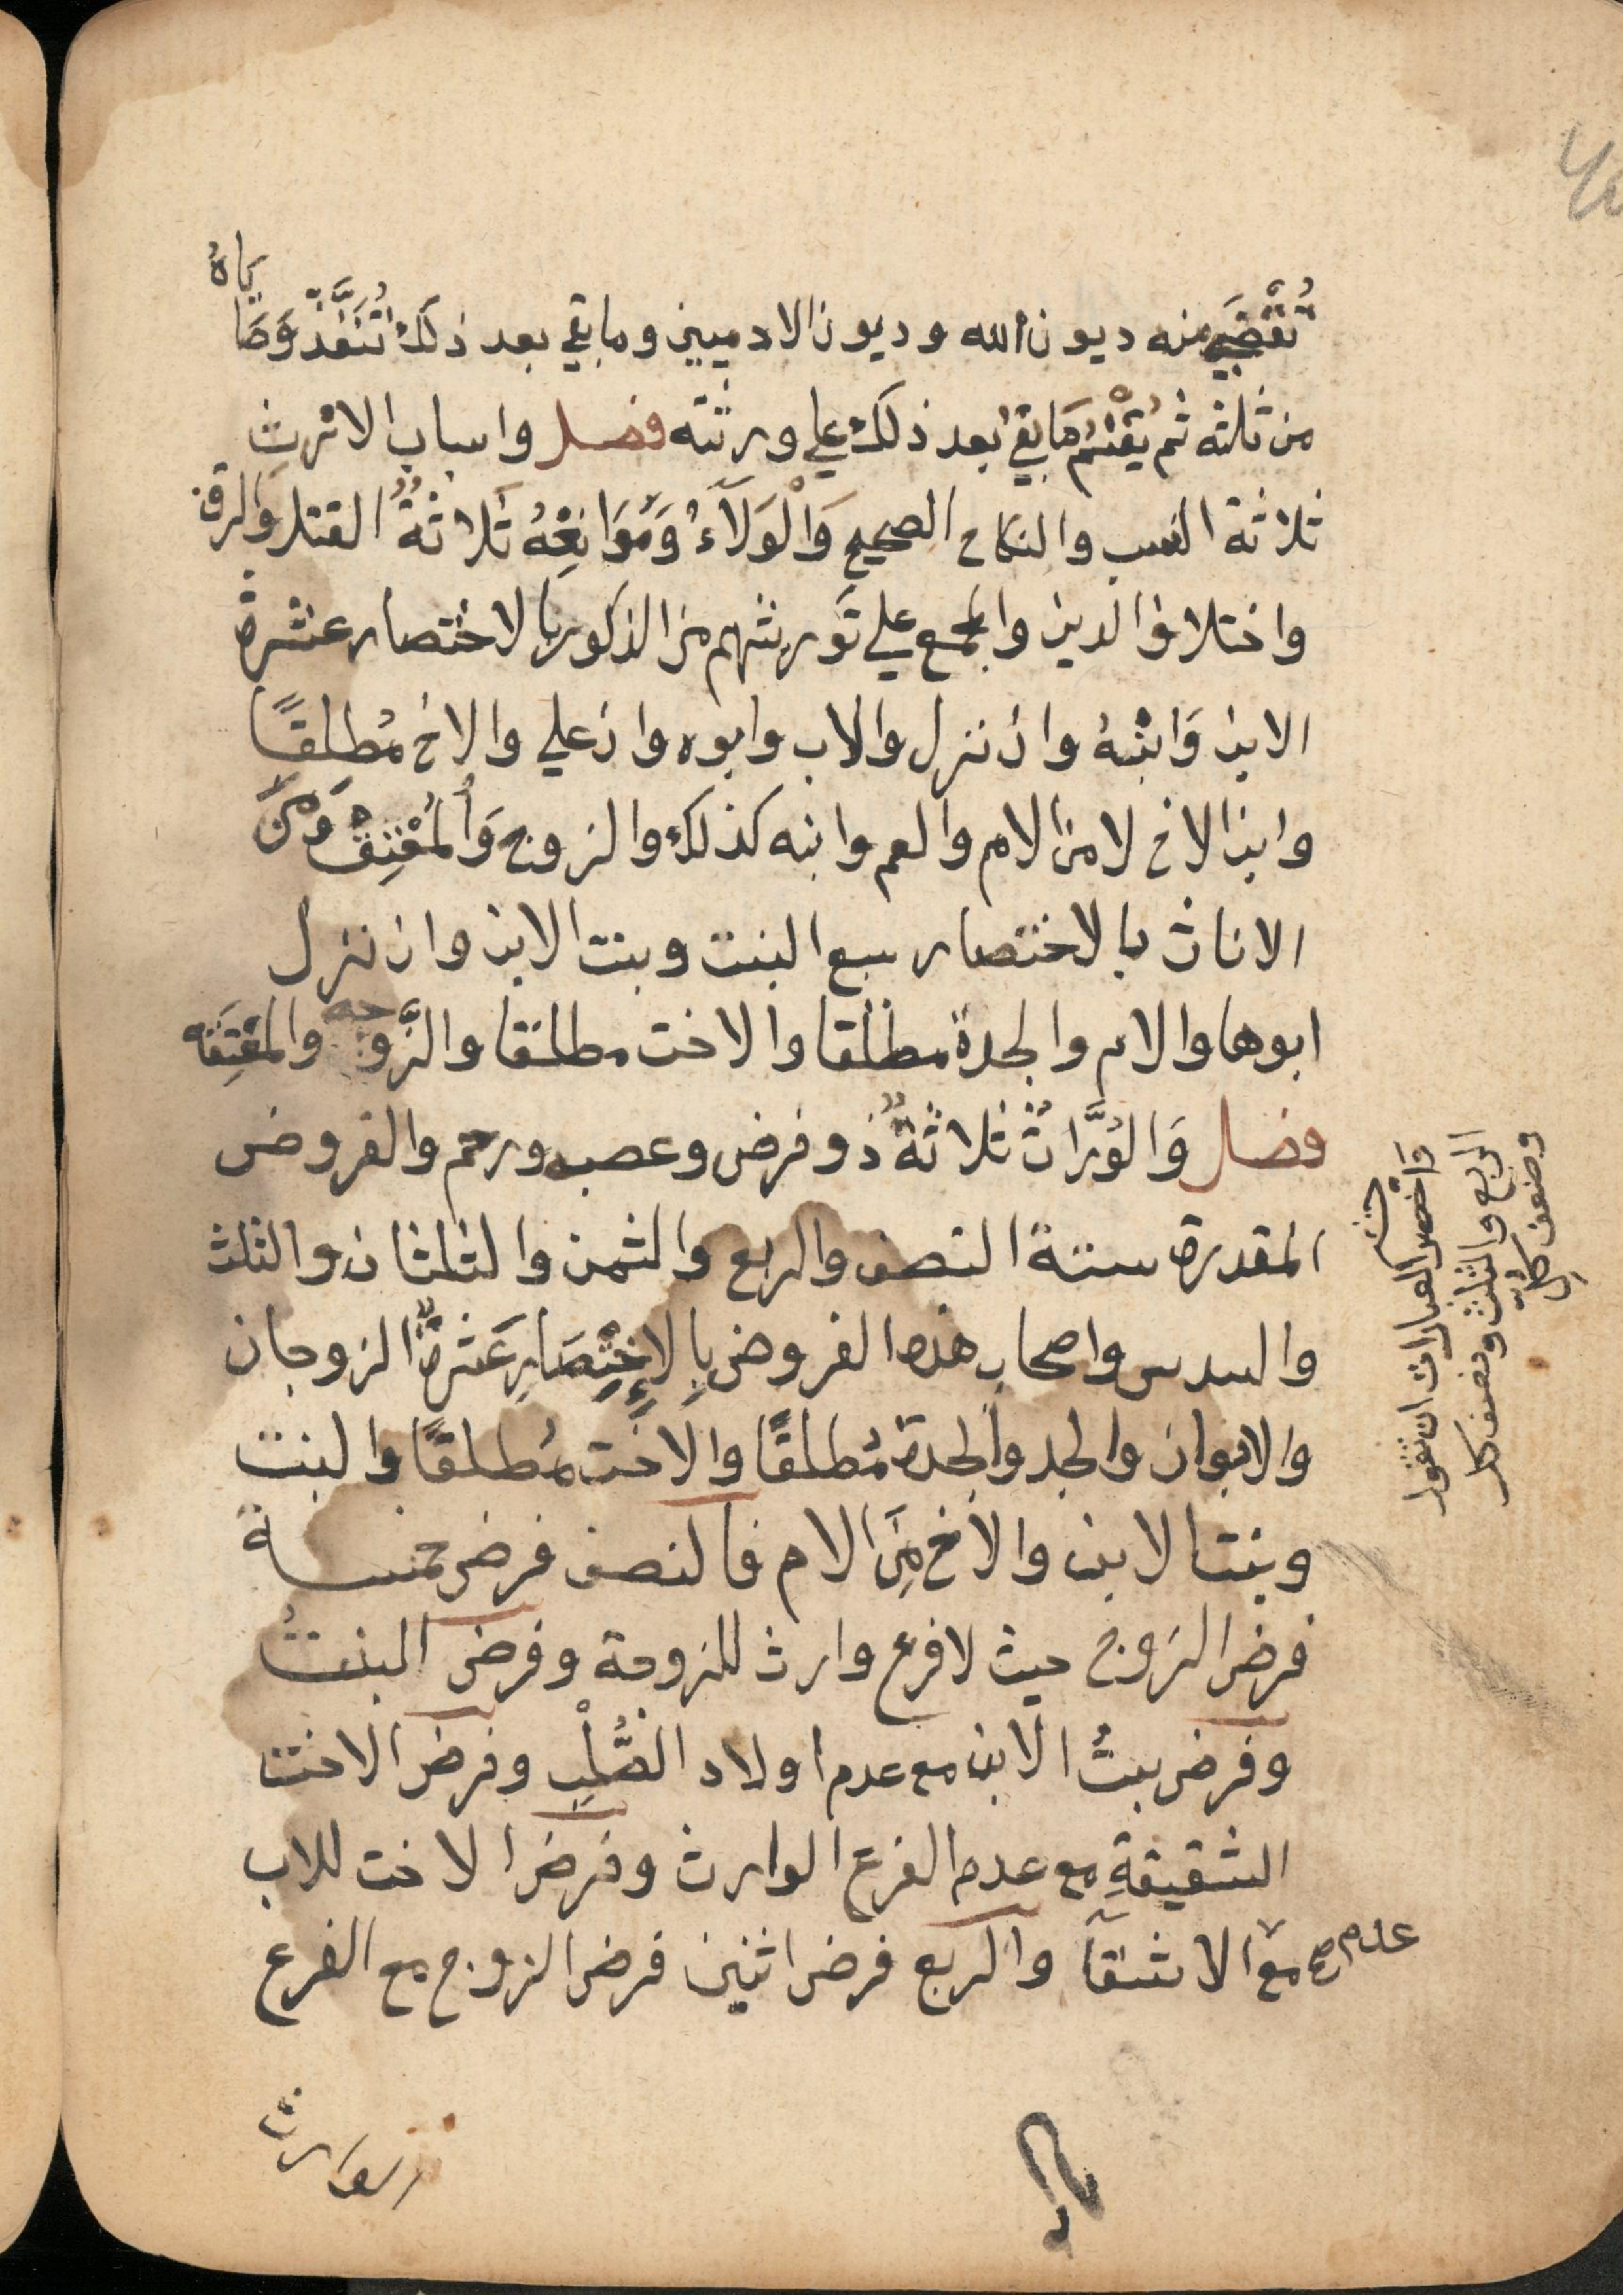 تُقْضَي منه ديون الله وديون الادميين وما بقي بعد ذلك تُنَفَّذُ وَصَاياهُ
من ثلثه ثم يُقْسَمُ مَا بقي بعد ذلك علي ورثته فصل واسباب الارث
ثلاثة النسب والنكاح الصحيح وَالْوَلَآءُ وَمَوَانِعُهُ ثَلَاثَةٌ القتل وَالرق
واختلاف الدين والمجمع علي تَوريثهم من الذكور بالاختصار عشرة
الابن وَابْنُهُ وان نزل والاب وابوه وان علي والاخ مُطلقًا
وابن الاخ لا من الام والعم وابنه كذلك والزوج وَالْمُعْتِقُ وَمِنَ
الاناث بالاختصار سبع البنت وبنت الابن وان نزل
ابوها والام والجدة مطلقا والاخت مطلقا والزَّوجه والمُعْتِقَه
فصل وَالوُرَّاثُ ثلاثةٌ ذو فرض وعصبه ورحم والفروض
المقدرة ستة النصف والربع والثمن والثلثان والثلث
والسدس واصحاب هذه الفروض بِالإِخْتِصَارِ عَشَرَةٌ الزوجان
والابوان والجد والجدة مُطلقًا والاخت مُطلقًا والبنت
وبنت الابن والاخ مِنَ الام فالنصف فرض خمسة
فرض الزوج حيث لا فرع وارث للزوجة وفرض البنتُ
وفرض بنتُ الابن مع عدم اولاد الصُّلْبِ وفرض الاخت
الشقيقةِ مع عدم الفرع الوارث وفرض الاخت للاب
مع عدم صح الاشقآ والربع فرض اثنين فرض الزوج مع الفرع
الوارث
وَاَخْصر العبارات ان تقول
الربع والثلث ونصف كل
وضعف كلٍّ